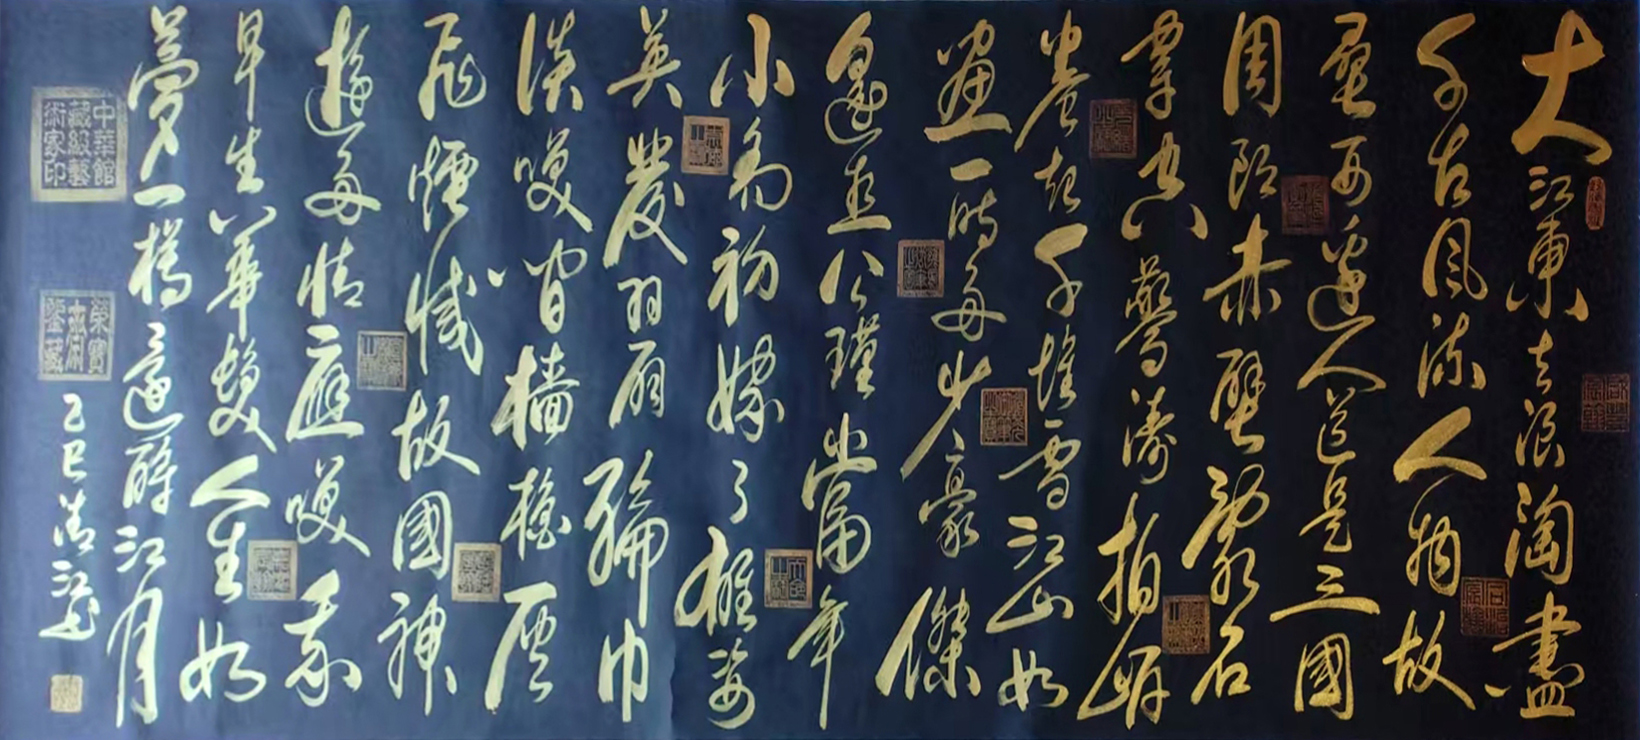 大江東去浪淘盡
千古風流人物故
壘西邊人道是三國
周郎赤壁亂石
穿空驚濤拍岸
卷起千堆雪江山如
畫一時多少豪傑
遙想公瑾當年
小喬初嫁了雄姿
英發羽扇綸巾
談笑間檣櫓灰
飛煙滅故國神
遊多情應笑我
早生華髮人生如
夢一樽還酹江月
乙巳
中華館藏級藝術家印
榮寶齋鑒藏